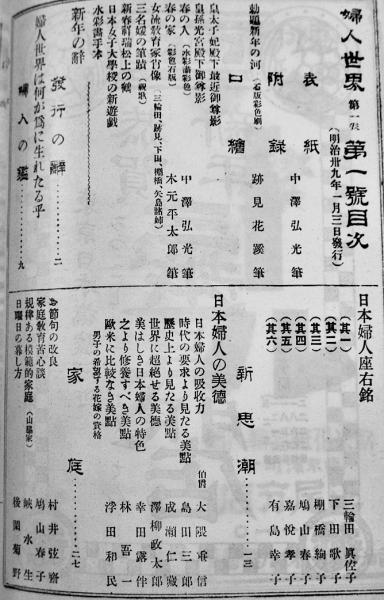 婦人世界 第一卷 第一號目次
(明治卅九年一月三日發行)
表紙 中澤弘光筆
附錄
勅題新年の河 (石版彩色刷) 跡見花蹊筆
口繪
皇太子妃殿下最近御尊影
皇孫光宮殿下御尊影
春の人 (水彩畵彩色) 中澤弘光筆
春の家 (彩色石版) 木元平太郎筆
女流敎育家肖像 (三輪田、跡見、下田、棚橋、矢島諸姉)
三名媛の筆蹟 (祝歌)
新春羽瑞松上の鶴
日本女子大學校の新遊戯
水彩畵手本
新年の辭
發行の辭 二
婦人世界は何が爲に生れたる乎
婦人の鑑 九
日本婦人座右銘
(其一) 三輪田眞佐子
(其二) 下田歌子
(其三) 棚橋絢子
(其四) 鳩山春子
(其五) 嘉悅孝子
(其六) 有島幸子
新思潮 一三
日本婦人の美德
日本婦人の吸收力 伯爵 大隈重信
時代の要求より見たる美點 島田三郎
歷史上より見たる美點 成瀬仁藏
世界に超絕せる美德 澤柳政太郎
美はしき日本婦人の特色 幸田露伴
之より修養すべき美點 林吾一
歐米に比較なき美點 浮田和民
男子の希望する花嫁の資格
家庭 二七
お節句の改良 村井弦齋
家庭敎育苦心談 鳩山春子
規律ある模範的家庭 (山縣家) 峽水生
日曜日の暮し方 後閑菊野